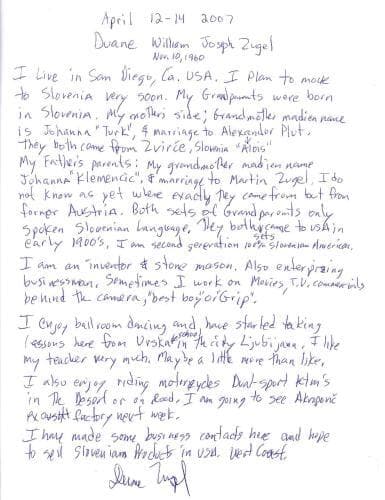 April 12-14 2007
Duane William Joseph Zugel
Nov. 10, 1960
I Live in San Diego, Ca. USA. I Plan to move
to Slovenia very soon. My Grandparents were born
in Slovenia. My mothers side; Grandmother madien name
is Johanna "Turk", & marriage to Alexander Plut.
They both came from Zvirče, Slovenia "Alois"
My Father's parents: My grandmother madien name
Johanna "Klemencic", & marriage to Martin Zugel. I do
not know as yet where exactly they came from but from
former Austria. Both sets of Grandparents only
spoken Slovenian Language. They both sets came to USA in
early 1900's, I am second generation 100% Slovenian American.
I am an inventor & stone mason. Also enterprizing
businessman. Sometimes I work on Movies, T.V. commercials
behind the camera, "best boy" or "Grip".
I enjoy ballroom dancing and have started taking
lessons here from Urska school in the city Ljubijana. I like
my teacher very much. Maybe a little more than like.
I also enjoy riding motorcycles Dual-sport Ktm's
in The Desert or on Road. I am going to see Akrapovic
exaustt factory next week.
I have made some business contacts here and hope
to sell Slovenian Products in USA. West Coast.
Duane Zugel